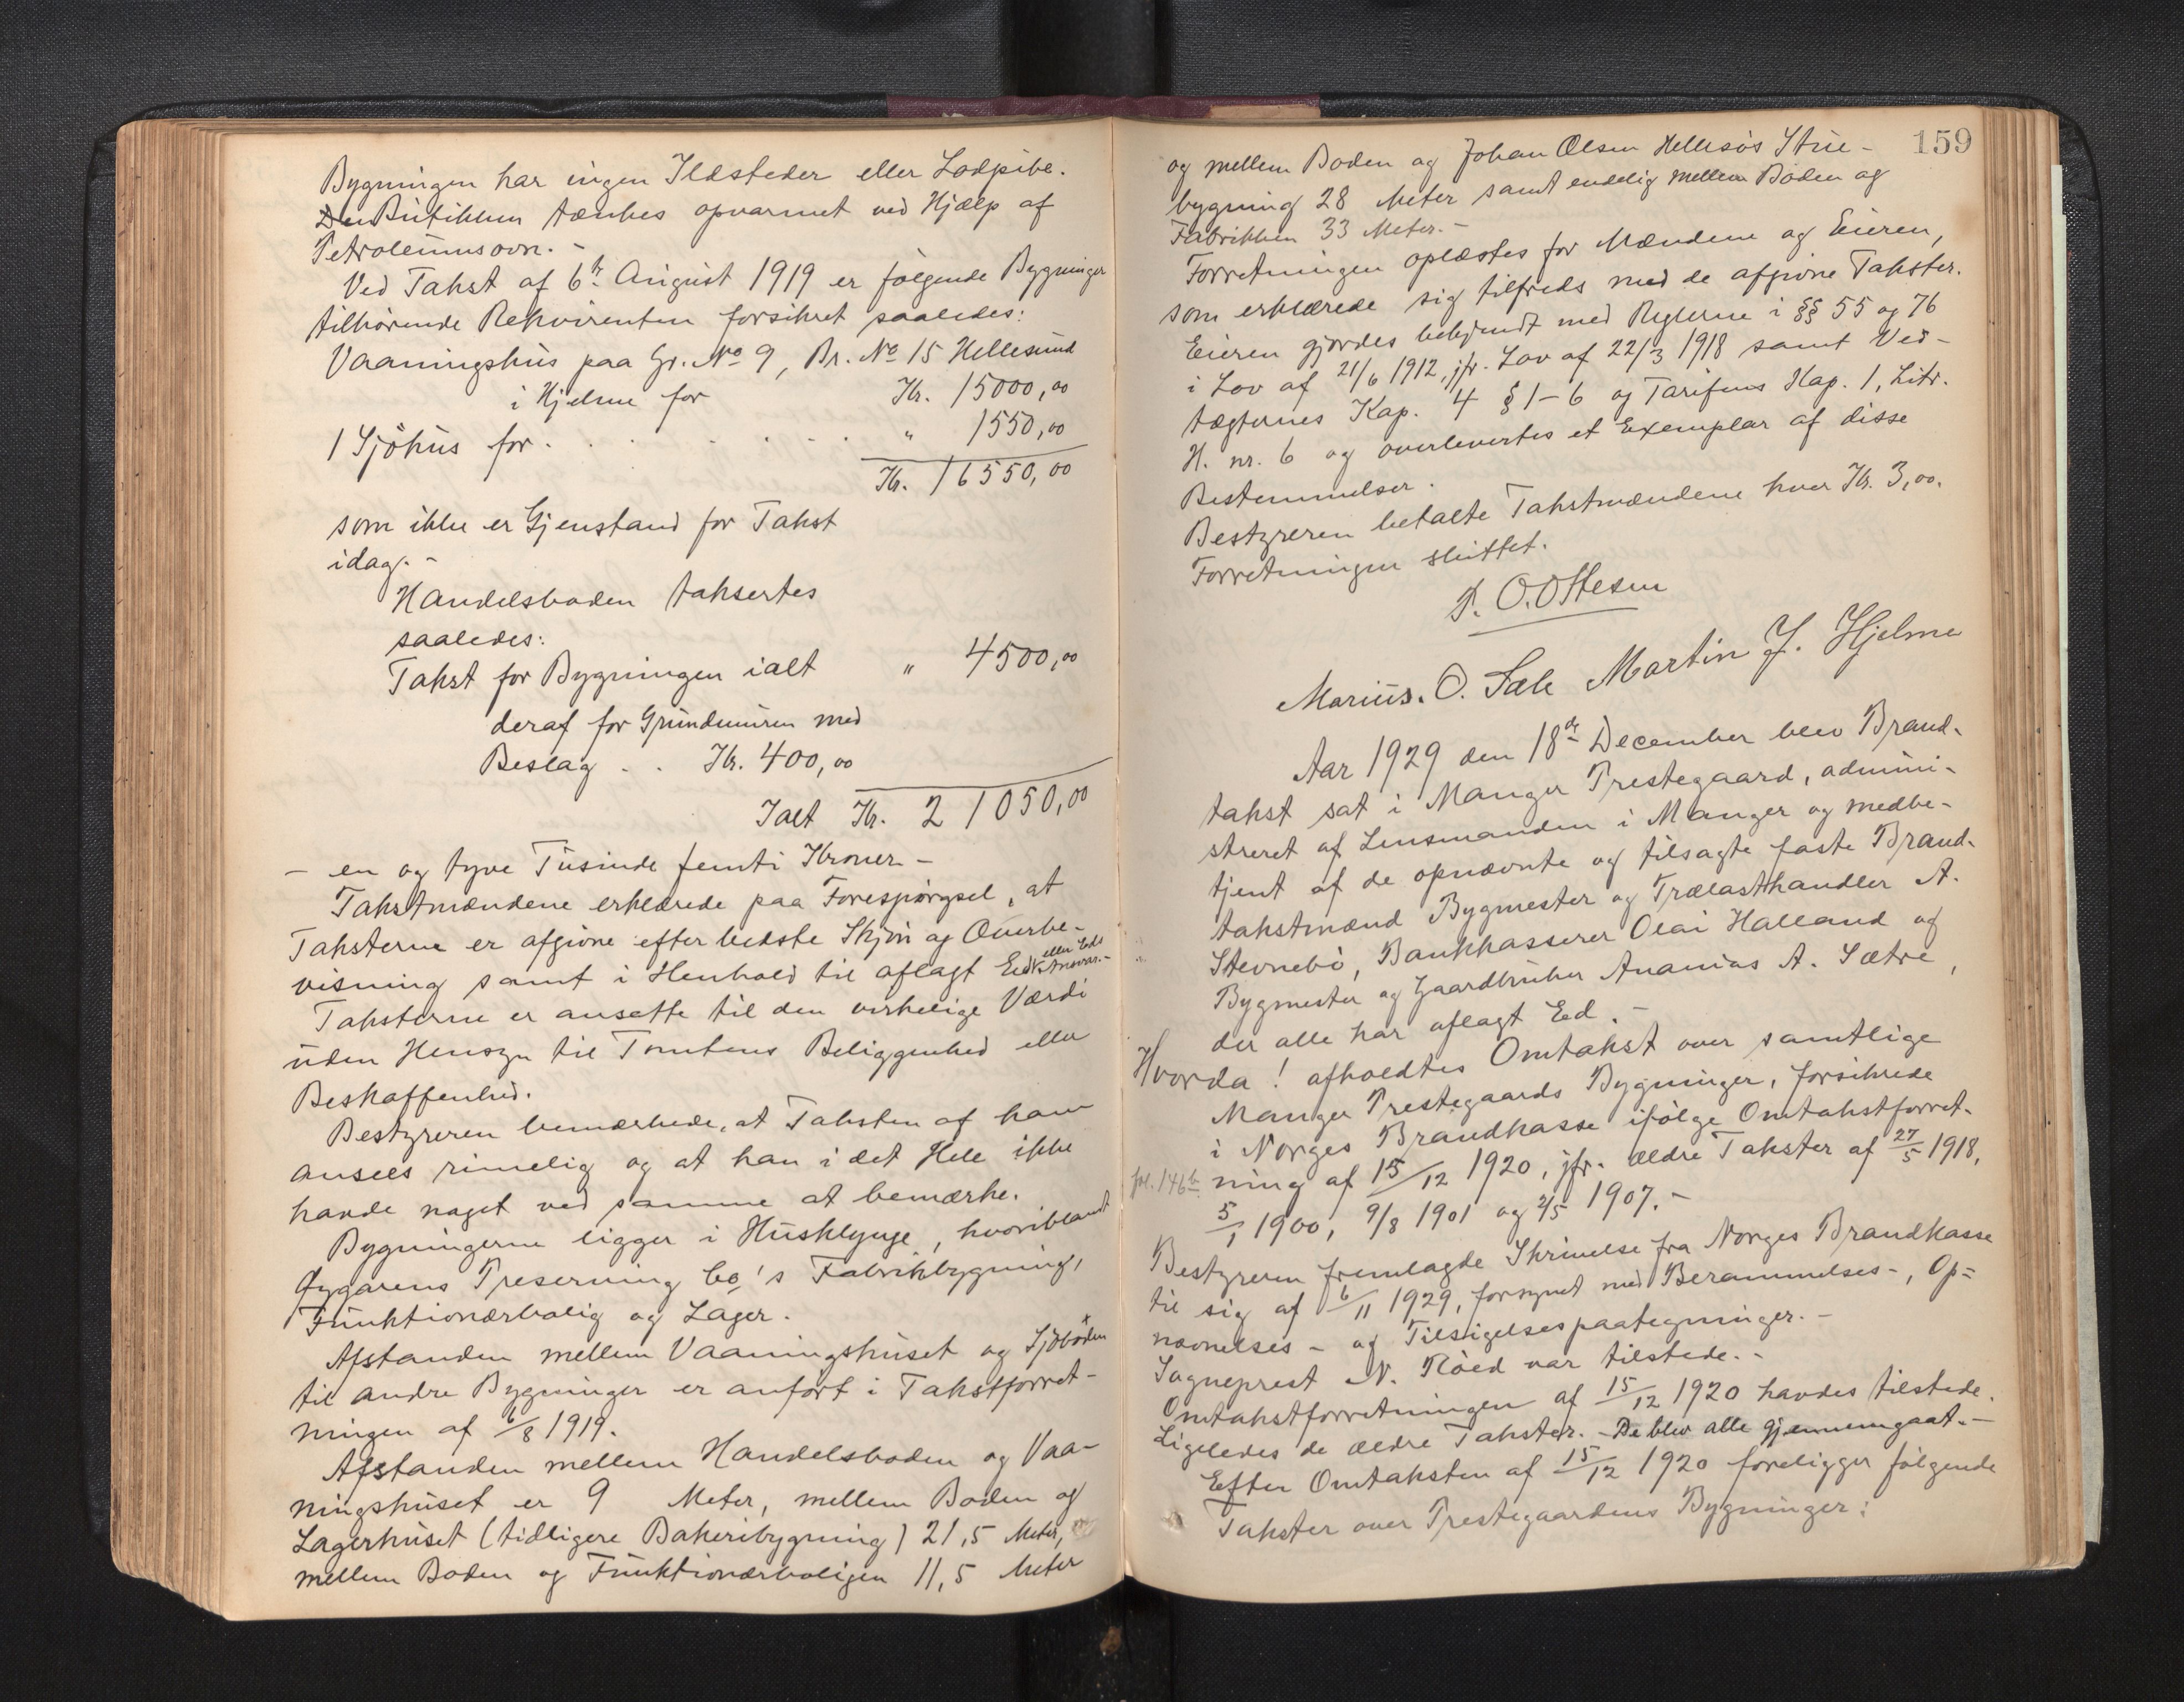 Bygningen har ingen Ildsteder eller Lodpibe.
Butikken tænkes opvarmet ved Hjælp af
Petroleumsovn. -
Ved Takst af 6te August 1919 er følgende Bygninger
tilhørende Rekvirenten forsikret saaledes:
Vaaningshus paa Gr. No 9, Br. No 15 Hellesund
i Hjelme for Kr. 15000,00
1 Sjøhus for . . . . . . . " 1550,00
Kr. 16550,00
som ikke er Gjenstand for Takst
idag. -
Handelsboden taksertes
saaledes:
Takst for Bygningen ialt " 4500,00
deraf for Grundmuren med
Beslag . . Kr. 400,00
Ialt Kr. 21050,00
- en og tyve Tusinde femti Kroner -
Takstmændene erklærede paa Forespørgsel, at
Taksterne er afgivne efter bedste Skjøn og Overbe-
visning samt i Henhold til aflagt Ed eller Eds Ansvar. -
Taksterne er ansatte til den virkelige Værdi
uden Hensyn til Tomtens Beliggenhed eller
Beskaffenhed.
Bestyreren bemærkede, at Taksten af ham
ansees rimelig og at han i det Hele ikke
havde noget ved samme at bemærke.
Bygningerne ligger i Husklynge, hvoriblandt
Øygarens Preserving Co's Fabrikbygning,
Funktionærbolig og Lager.
Afstanden mellem Vaaningshuset og Sjøboden
til andre Bygninger er anført i Takstforret-
ningen af 6/8 1919.
Afstanden mellem Handelsboden og Vaa-
ningshuset er 9 Meter, mellem Boden og
Lagerhuset (tidligere Bakeribygning) 21,5 Meter,
mellem Boden og Funktionærboligen 11,5 Meter
159
og mellem Boden og Johan Olsen Hellesøs Stue-
bygning 28 Meter samt endelig mellem Boden og
Fabrikken 33 Meter. -
Forretningen oplæstes for Mændene og Eieren,
som erklærede sig tilfreds med de afgivne Takster.
Eieren gjordes bekjendt med Reglerne i §§ 55 og 76
i Lov af 21/6 1912, jfr. Lov af 22/3 1918 samt Ved-
tægternes Kap. 4 § 1-6 og Tarifens Kap. 1, Litr.
H. nr. 6 og overlevertes et Exemplar af disse
Bestemmelser.
Bestyreren betalte Takstmændene hver Kr. 3,00.
Forretningen sluttet.
P. O. Ottesen
Marius. O. Sæle Martin J. Hjelme
Aar 1929 den 18de December blev Brand-
takst sat i Manger Prestegaard, admini-
streret af Lensmanden i Manger og medbe-
tjent af de opnævnte og tilsagte faste Brand-
takstmænd Bygmester og Trælasthandler A.
Stevnebø, Bankkasserer Olai Halland og
Bygmester og Gaardbruker Ananias A. Sætre,
der alle har aflagt Ed. -
Hvorda! afholdtes Omtakst over samtlige
Manger Prestegaards Bygninger, forsikrede
i Norges Brandkasse ifølge Omtakstforret-
fol. 146b. ning af 15/12 1920, jfr. ældre Takster af 27/5 1918,
5/1 1900, 9/8 1901 og 2/5 1907. -
Bestyreren fremlagde Skrivelse fra Norges Brandkasse
til sig af 6/11 1929, forsynet med Berammelses-, Op=
nævnelses - og Tilsigelsespaategninger. -
Sogneprest N. Röed var tilstede. -
Omtakstforretningen af 15/12 1920 havdes tilstede.
Ligeledes de ældre Takster. - De blev alle gjennemgaat. -
Efter Omtaksten af 15/12 1920 foreligger følgende
Takster over Prestegaardens Bygninger: